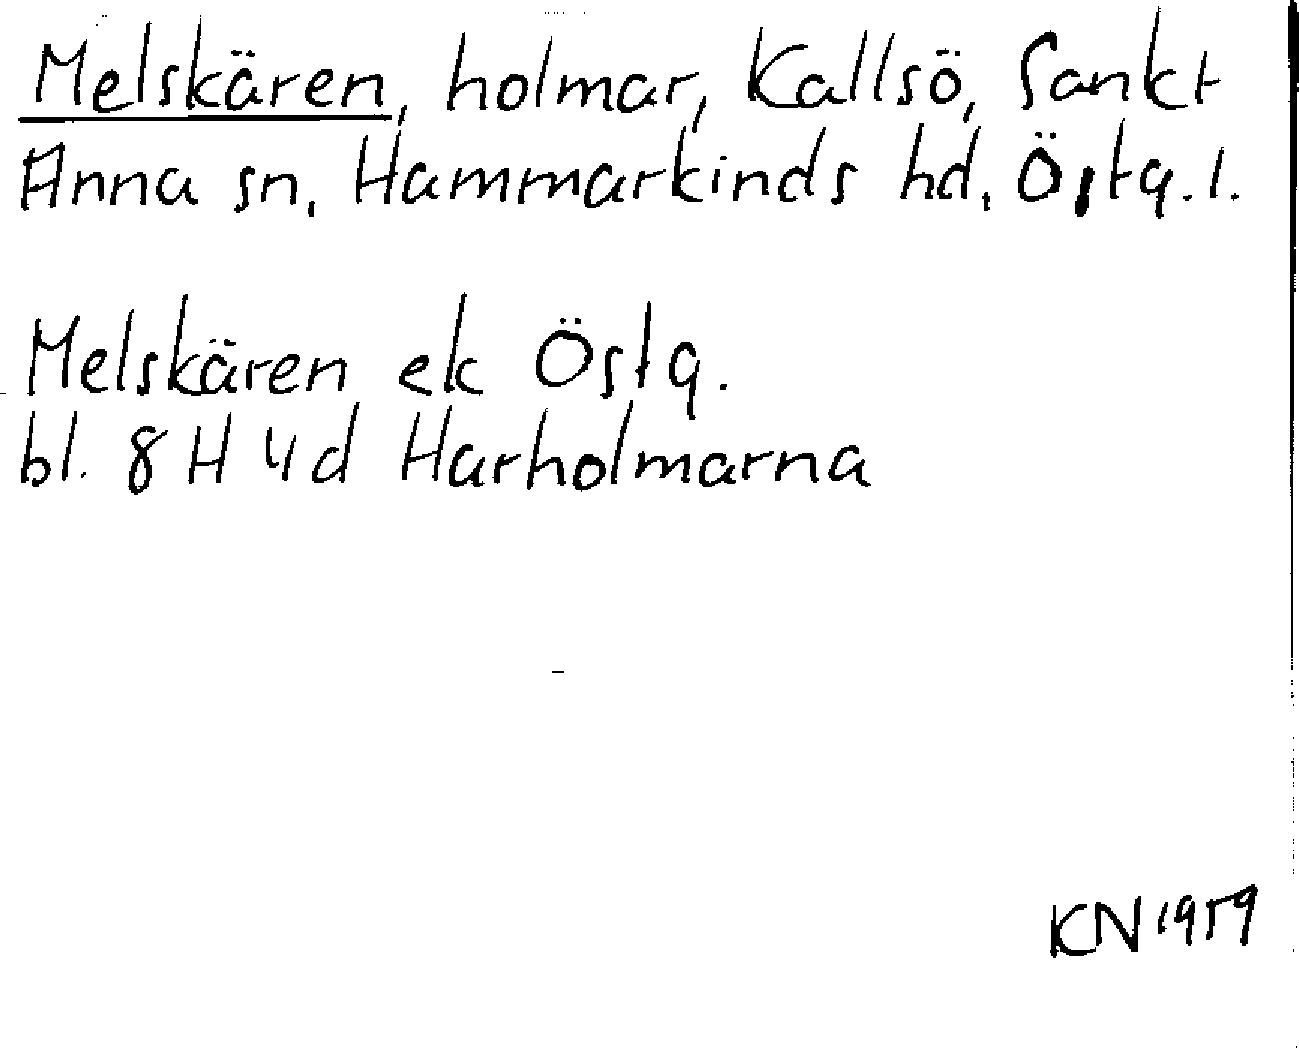 Melskären, holmar, Kallsö, Sankt
Anna sn, Hammarkinds hd, Östg. l.
Melskären ek Östg.
bl. 8 H 4 d Harholmarna
KN 1959